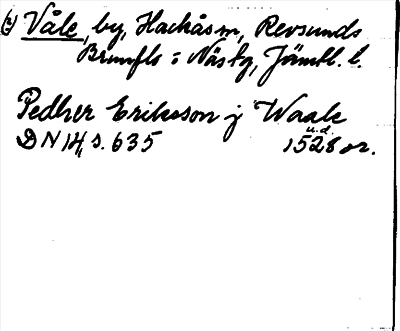 (2) Våle, by, Hackås sn, Revsunds
Brunflo o Näs tg, Jämtl. l.
Pedher Eriksson j Waale
u.d.
DN 14, s. 635 1528 or.